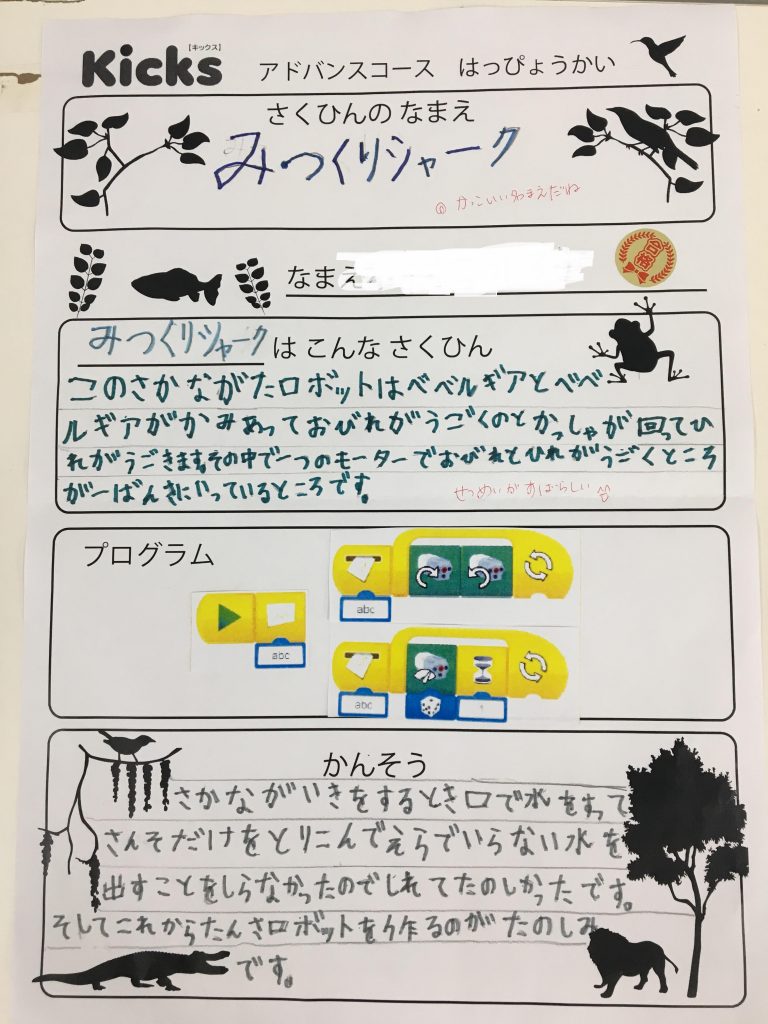 【キックス】
Kicks アドバンスコース はっぴょうかい
さくひんの なまえ
みつくりシャーク
かっこいいなまえだね
なまえ
みつくりシャーク は こんな さくひん
このさかながたロボットはベベルギアとベベ
ルギアがかみあっておびれがうごくのとかっしゃが回ってひ
れがうごきます。その中で一つのモーターでおびれとひれがうごくところ
が一ばんきにいっているところです。
せつめいがすばらしい
プログラム
abc
abc
abc
かんそう
さかながいきをするとき口で水をすって
さんそだけをとりこんでえらでいらない水を
出すことをしらなかったのでしれてたのしかったです。
そしてこれからたんさロボットを作るのがたのしみ
です。